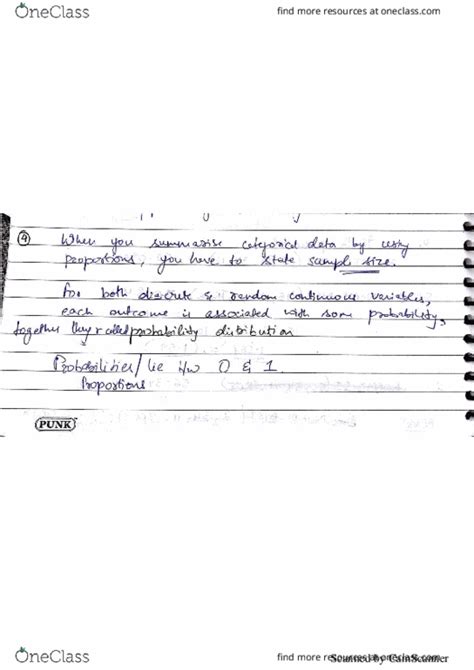 OneClass
find more resources at oneclass.com
4
When you summarise categorical data by using
proportions, you have to state sample size.
For both discrete & random continuous variables,
each outcome is associated with some probability,
together they r called probability distribution
Probabilities/ lie b/w 0 & 1.
Proportions
PUNK
OneClass
find more resources at oneclass.com
Scanned by CamScanner